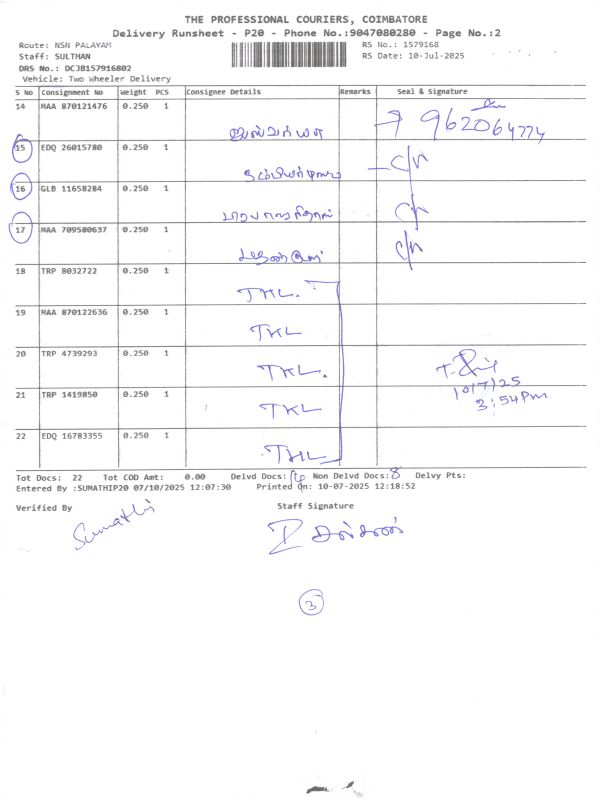 THE PROFESSIONAL COURIERS, COIMBATORE
Delivery Runsheet - P20 - Phone No.:9047080280 - Page No.:2
Route: NSN PALAYAM
RS No.: 1579168
Staff: SULTHAN
RS Date: 10-Jul-2025
DRS No.: DCJB157916802
Vehicle: Two Wheeler Delivery
S No Consignment No Weight PCS Consignee Details Remarks Seal & Signature
14 MAA 870121476 0.250 1 ஐஸ்வர்யா 962064774
15 EDQ 26015780 0.250 1 C/N
16 GLB 11658284 0.250 1 C/N
17 MAA 709580637 0.250 1 C/N
18 TRP 8032722 0.250 1 TKL.
19 MAA 870122636 0.250 1 TKL
20 TRP 4739293 0.250 1 TKL.
10/7/25
21 TRP 1419850 0.250 1 TKL
3:54 Pm
22 EDQ 16783355 0.250 1 TKL
Tot Docs: 22 Tot COD Amt: 0.00 Delvd Docs: 14 Non Delvd Docs: 8 Delvy Pts:
Entered By :SUMATHIP20 07/10/2025 12:07:30 Printed On: 10-07-2025 12:18:52
Verified By Staff Signature
Sumathi
3